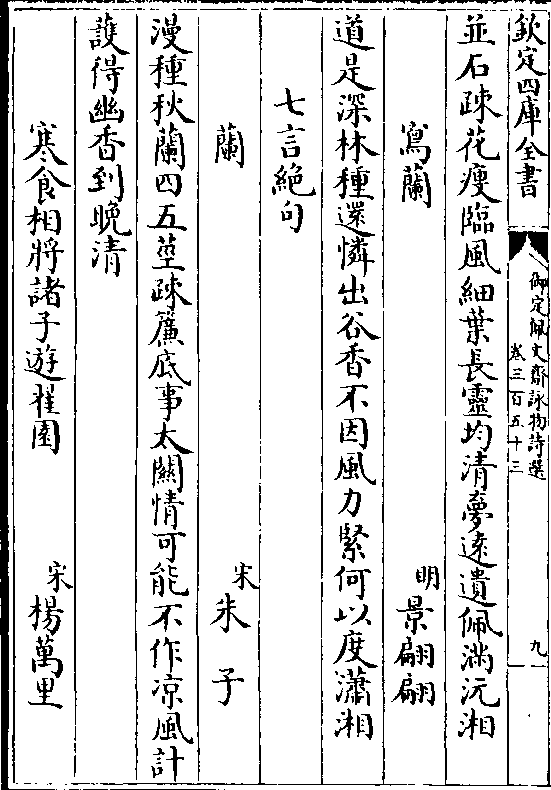 欽定四庫全書
御定佩文齋詠物詩選
卷三百五十三
九
並石疎花瘦臨風細葉長靈均清夢遠遺佩滿沅湘
寫蘭 明 景翩翩
道是深林種還憐出谷香不因風力緊何以度瀟湘
七言絶句
蘭 宋 朱子
漫種秋蘭四五莖疎簾底事太關情可能不作凉風計
護得幽香到晚清
寒食相將諸子遊翟園 宋 楊萬里